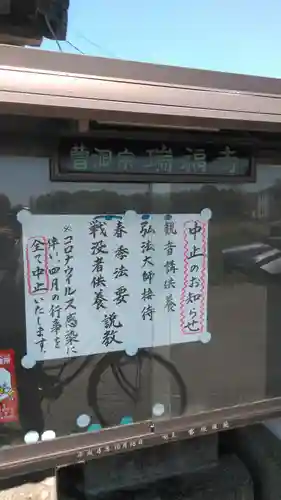 曹洞宗 瑞福寺
中止のお知らせ
観音講供養
弘法大師接待
春季法要
戦没者供養 説教
※コロナウイルス感染に
伴い四月の行事を
全て中止いたします。